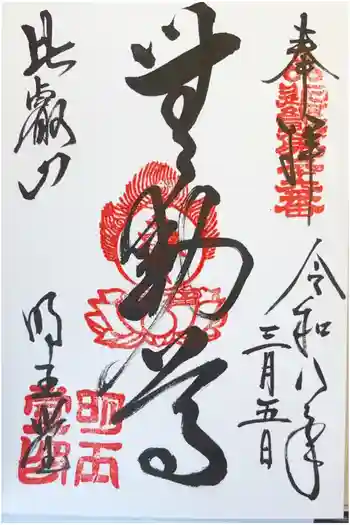 奉拝
令和八年
三月五日
無動尊
比叡山
明王堂